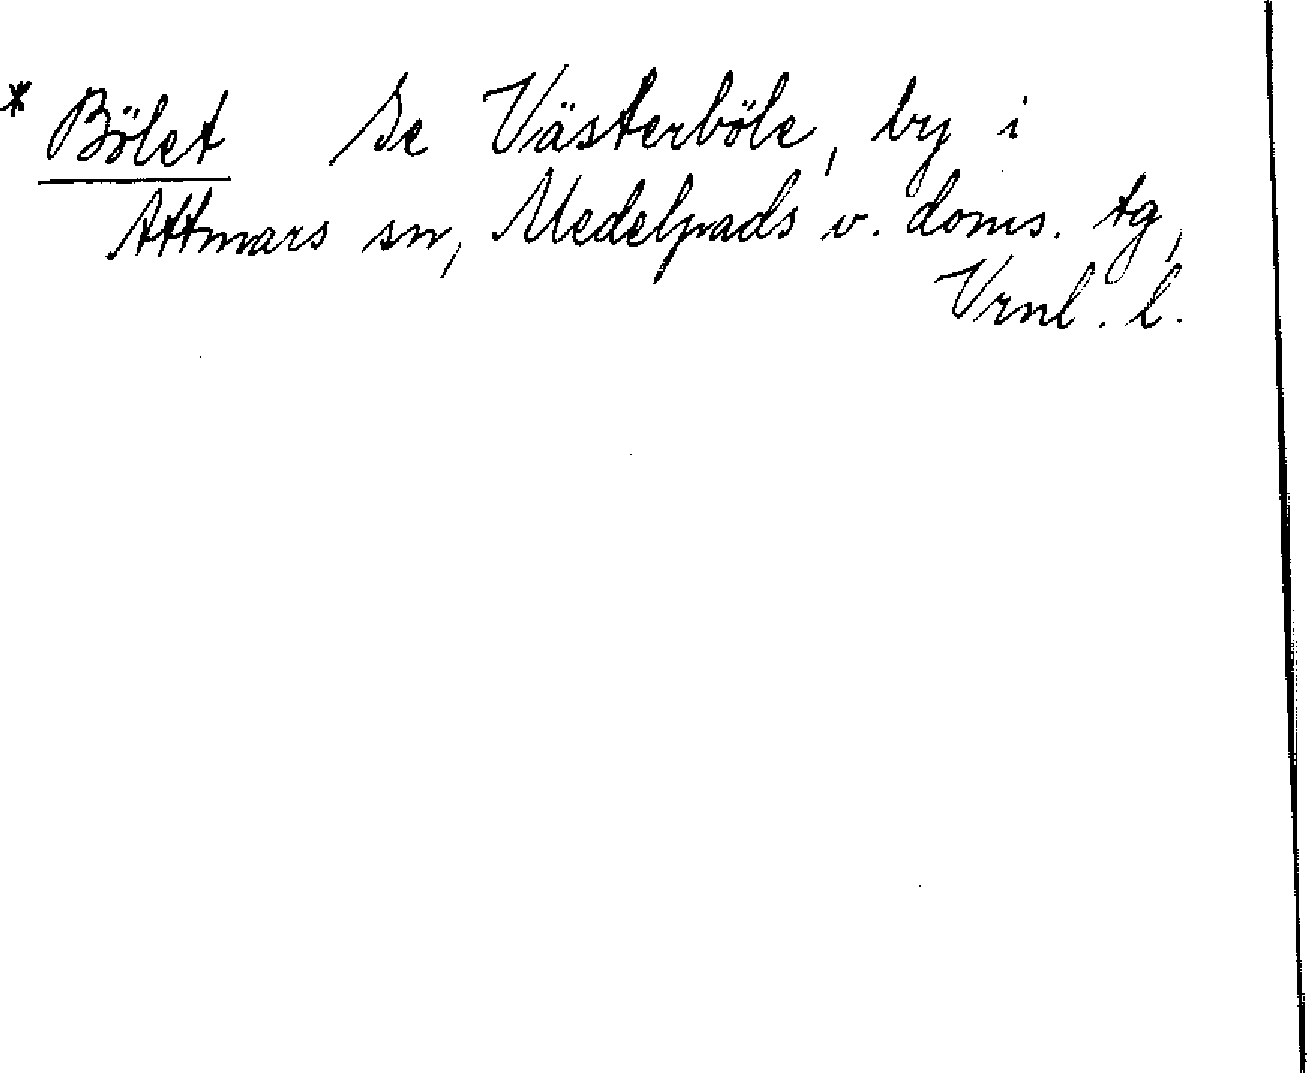 * Bölet Se Västerböle, by i
Attmars sn, Medelpads v. doms. tg,
Vrnl. l.